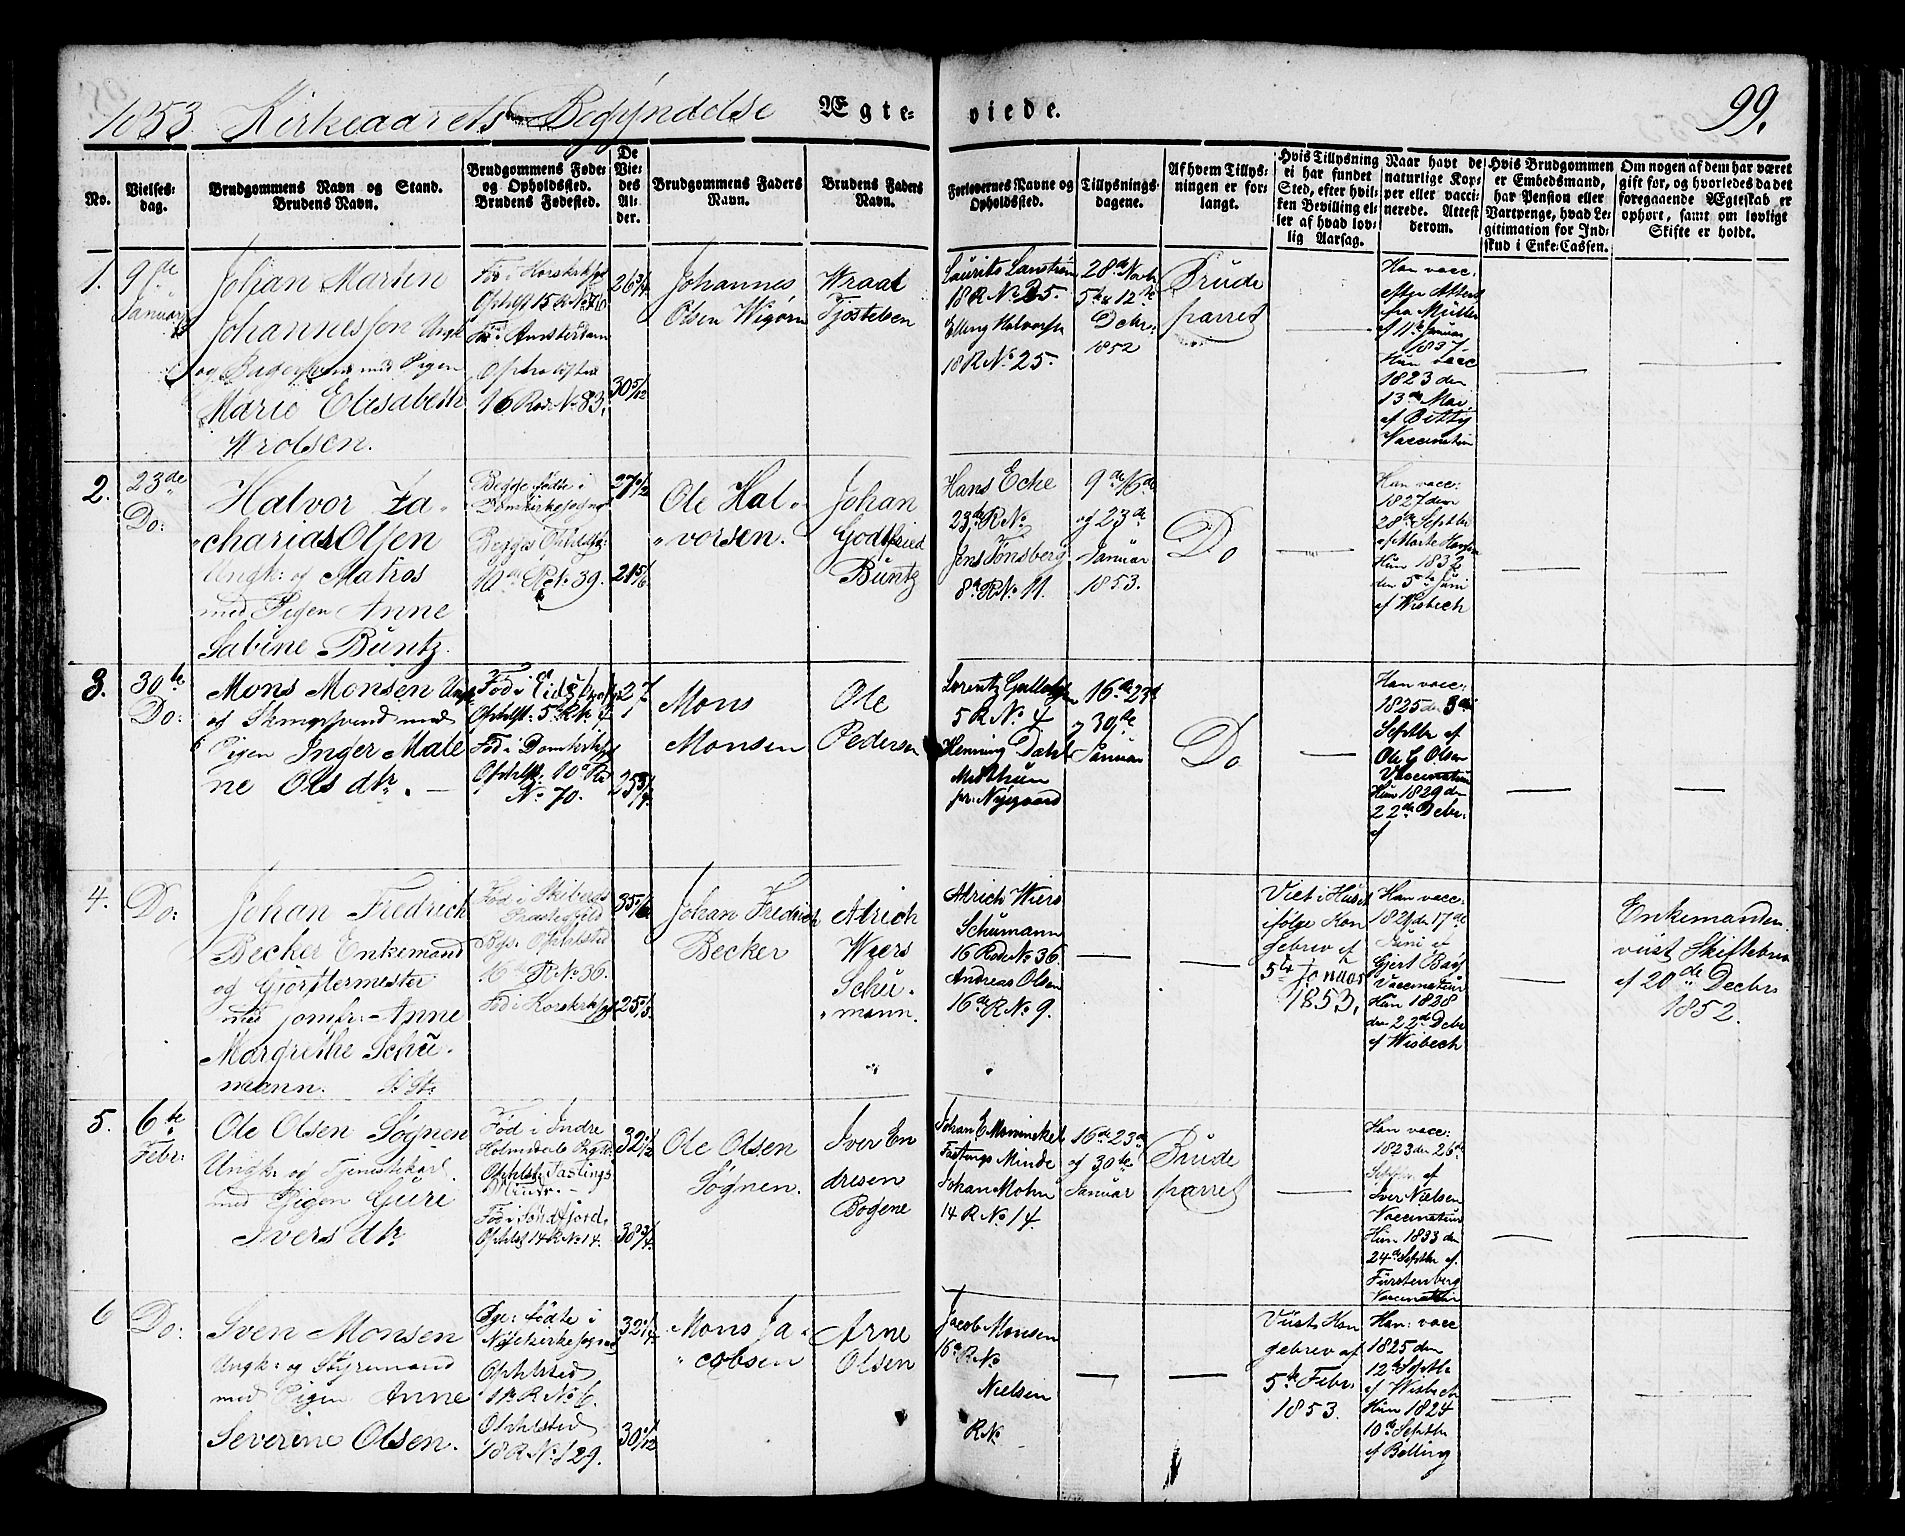 1853 Kirkeaarets Begÿndelse Ægte- viede. 99.
No.
Vielses-
dag.
Brudgommens Navn og Stand.
Brudens Navn.
Brudgommens Føde-
og Opholdssted.
Brudens Fødested.
De
Vie-
des
Al-
der.
Brudgommens Faders
Navn.
Brudens Faders
Navn.
Forlovernes Navne og
Opholdssted.
Tillysnings-
dagene.
Af hvem Tillys-
ningen er for-
langt.
Hvis Tillysning
ei har fundet
Sted, efter hvil-
ken Bevilling el-
ler af hvad lov-
lig Aarsag.
Naar havt de
naturlige Kop-
per eller vacci-
nerede. Attest
derom.
Hvis Brudgommen
er Embedsmand,
har Pension eller
Vartpenge, hvad Le-
gitimation for Ind-
skud i Enke-Cassen.
Om nogen af dem har været
gift før, og hvorledes da det
foregaaende Ægteskab er
ophørt, samt om lovligt
Skifte er holdt.
1.
9de
Januar
Johan Marten
Johannessen Ungk
og med Pigen
Marie Elisabeth
Wrolsen.
Født i Korskirken
Ophlst 15 R No
Fød i Amsterdam
Ophold
16 Rode No 83.
26 3/4
30 5/12
Johannes
Olsen Wigørn
Wraal
Tjostelsen
Laurits Lanström
18 R No 25.
Elling Halvorsen
18 R No 25.
28de Novbr
5te & 12te
Decbr:
1852
Brude
parret
Han vacc:
efter Attest
fra Müller
af 11te Januar
1837
Hun vacc
1823 den
13de Mai
af Betty
Vaccinatrin
2.
23de
Do:
Halvor Za-
charias Olsen
Ungk: og Matros
med Pigen Anne
Sabine Büntz.
Begge fødte i
Domkirkesogne
Begges Ophlst:
10de R No 39.
21 5/6
Ole Hal-
vorsen.
Johan
Godtfried
Büntz
Hans Ecke
23de R No
Jens Tonsberg
8de R No 11.
9de 16de
og 23de
Januar
1853.
Do
Han vacc:
1827 den
28de Septbr
af Marte Hansen
Hun 1832
den 5te Juni
af Wisbech
3.
30te
Do:
Mons Monsen Ungk
og Skinsvend med
Pigen Inger Male
ne Olsdtr. —
Fød i Eids
Ophlst: 5te R No 4
Fød i Domkirken
Ophlst: 10de Rd
No 70.
27
1
25 3/4
Mons
Monsen
Ole
Pedersen
Lorentz
5 R No 4
Henning Dahl
Midthun
pr: Nygaard
16de 23de
& 30te
Januar
Do
Han vacc:
1825 den 3de
Septbr af
Ole G Olsen
Vaccinatur
Hun 1829 den
22de Decbr:
af
4.
Do:
Johan Fredrich
Becker Enkemand
og Giørtlermester
med jomfr: Anne
Margrethe Schu-
mann.
Fød i Skibereds
Præstegjeld
Begs: Ophlsted
16de R No 36.
Fød i Korskirken
35 1/6
25 1/3
Johan Fredrich
Becker
Alrich
Wiers
Schu-
mann.
Alrich Wiers
Schumann
16 Rode No 36
Andreas Olsen
16de R No 9.
Viet i Huset
ifølge Kon
gebrev af
5te Januar
1853.
Han vacc:
1821 den 17de
Juni af
Gjert Bøy
Vaccinatur
Hun 1828
den 22de Decbr
af Wisbech
Enkemanden
viist Skiftebrev
af 20de Decbr
1852.
5.
6te
Febr:
Ole Olsen Søgnen
Ungk: og Tjenistekarl
med Pigen Guri
Iversdtr
Fød i Indre
Holmedals Prgj:
Ophlst: Fastings
Minde. —
Fød i Søndfjord.
Ophlst 14 R No 14.
32 1/2
38 3/4
Ole Olsen
Søgnen.
Iver En
dresen
Bogene
Johan E Mowinckel
Fastings Minde
Johan Mohn
14 R No 14.
16de 23de
og 30te
Januar
Brude
parret
Han vacc:
1823 den 26de
Septbr: af
Iver Nielsen
Vaccinatur
Hun 1833 den
24de Septbr af
Fürstenberg
Vaccinatrin
6
Do:
Sven Monsen
Ungk: og Styrmand
med Pigen Anne
Severine Olsen.
Bge: fødte i
Nykirkesognet
Ophlsted
1te R No 6.
Ophlsted
18 R No 129.
32 1/4
30 1/12
Mons Ja-
cobsen
Arne
Olsen
Jacob Monsen
16de R No
Nielsen
R No
Viist Kon
gebrev af
5te Febr:
1853.
Han: vacc
1825 den
12te Septbr
af Wisbech
Hun 1824
10de Septbr
af Bølling